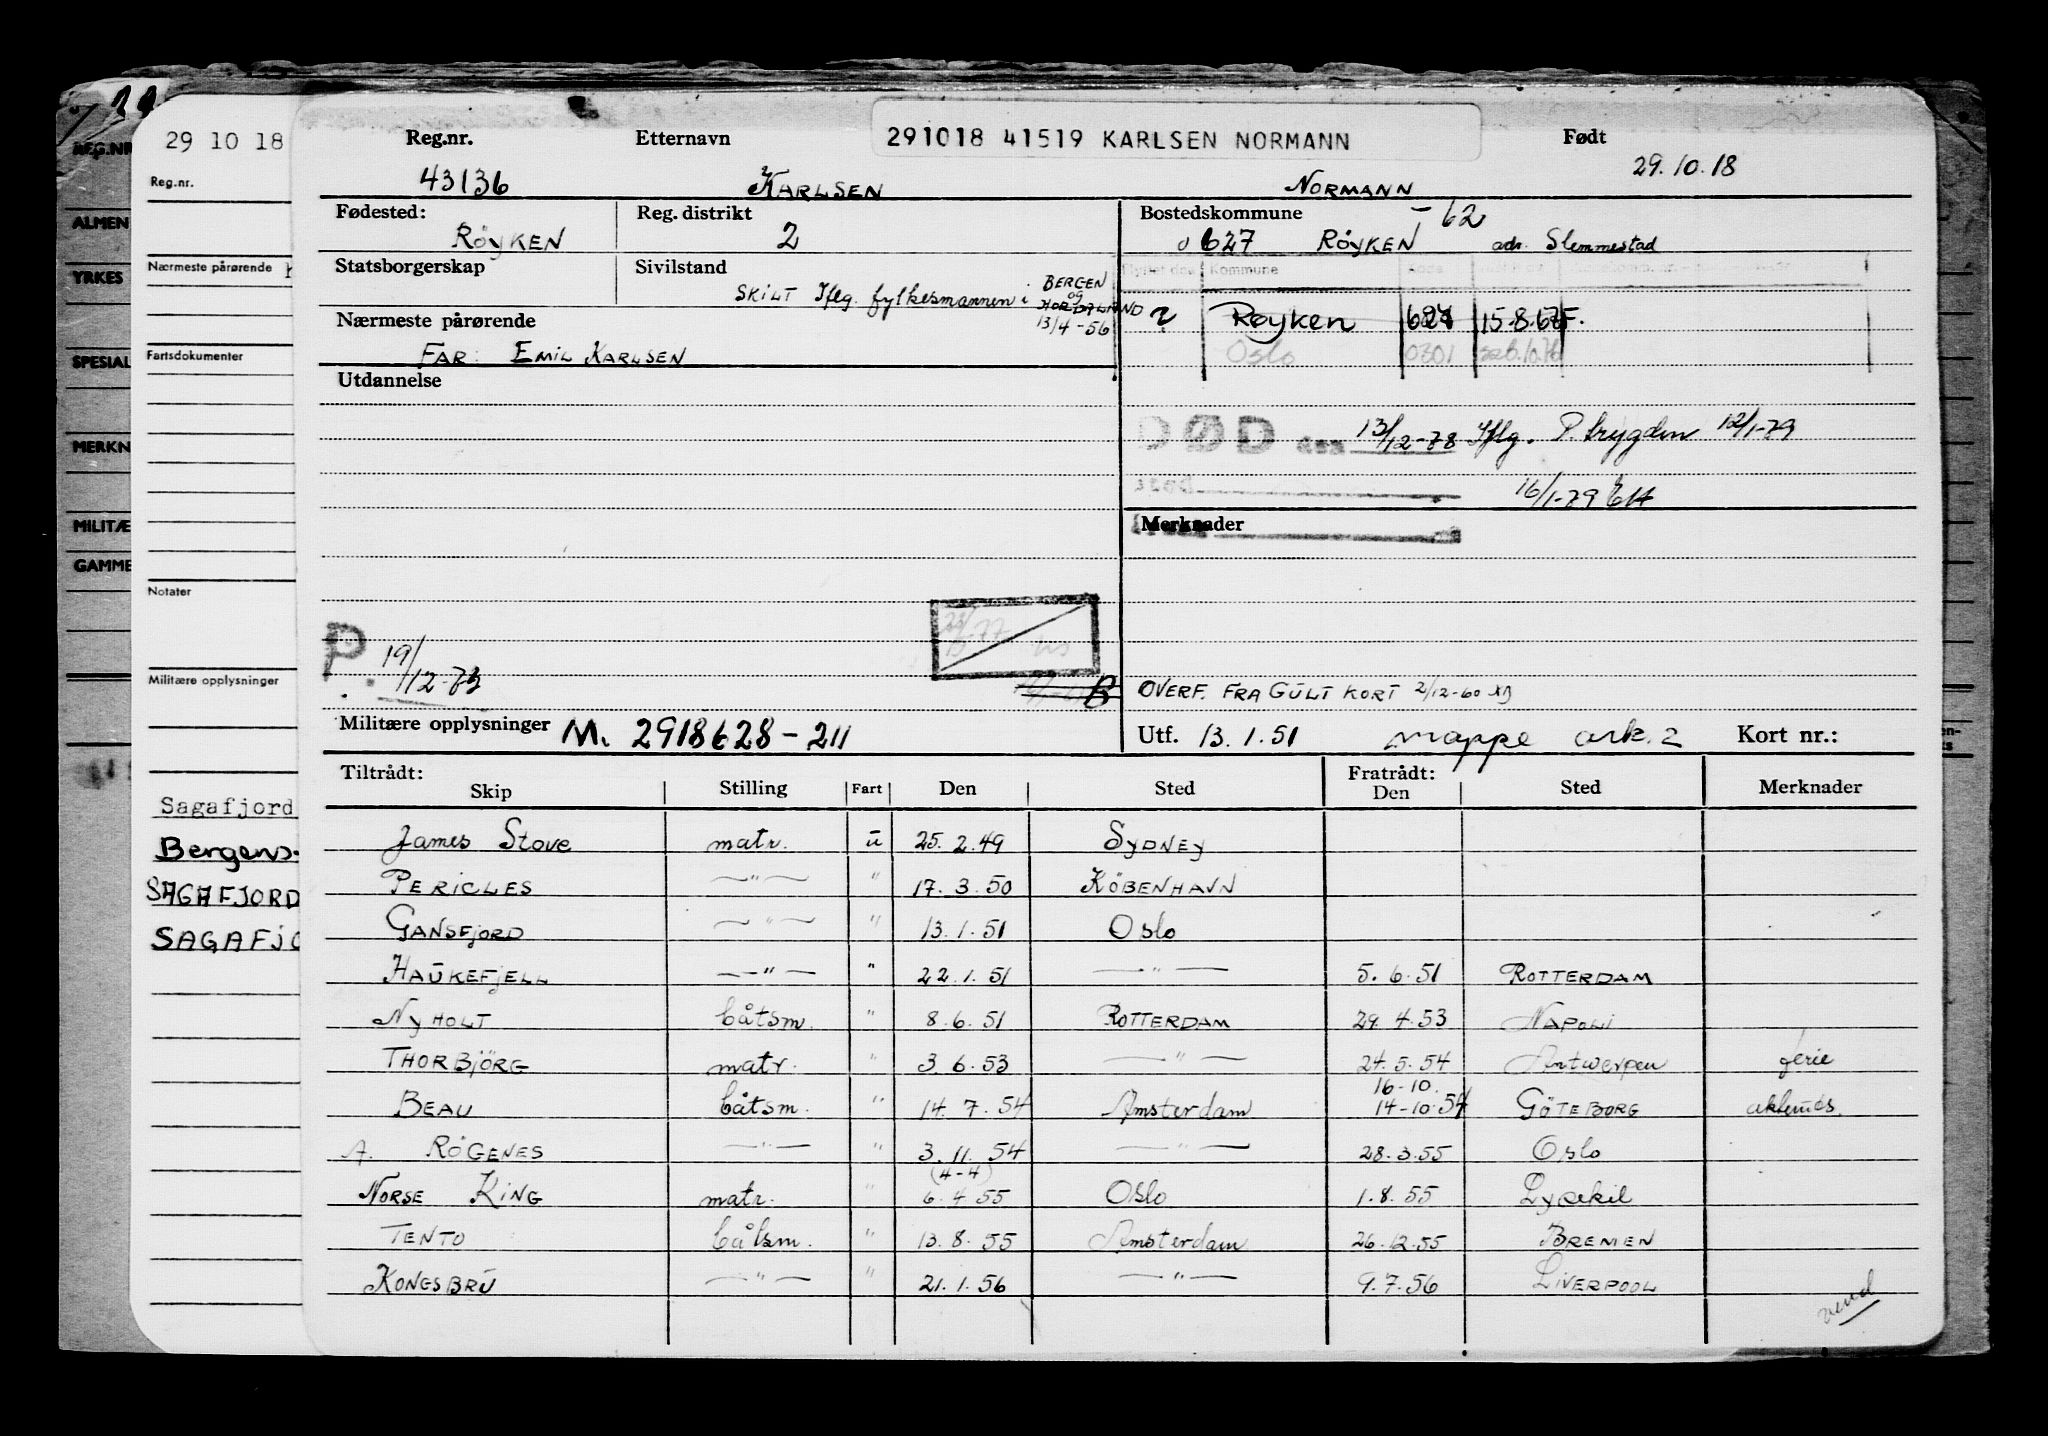 29 10 18
REG.NR
ALMEN
YRKES
SPESIAL
MERKN
MILITÆ
GAMME
Reg.nr.
Nærmeste pårørende
Fartsdokumenter
Notater
Militære opplysninger
Sagafjord
Bergens-
SAGAFJORD
SAGAFJO
Reg.nr. Etternavn 291018 41519 KARLSEN NORMANN Født
43136 KARLSEN NORMANN 29.10.18
Fødested: Reg. distrikt Bostedskommune -62
RÖYKEN 2 0627 RÖYKEN adr. Slemmestad
Statsborgerskap Sivilstand Kommune
SKILT Iflg. fylkesmannen i BERGEN og HORDALAND 13/4-56
Nærmeste pårørende 2 Røyken 627 15.8.67 F.
FAR: EMIL KARLSEN Oslo 0301 seb.10.76
Utdannelse
DØD den 13/12-78 Iflg. P.trygden 12/1-79
16/1-79
Merknader
P. 19/12-73
OVERF. FRA GULT KORT 2/12-60
Militære opplysninger M. 2918628-211 Utf. 13.1.51 mappe ark. 2 Kort nr.:
Tiltrådt: Fratrådt:
Skip Stilling Fart Den Sted Den Sted Merknader
James Stove matr. ū 25.2.49 SYDNEY
PERICLES —"— " 17.3.50 KÖBENHAVN
GANSFJORD —"— " 13.1.51 Oslo
HAUKEFJELL —"— " 22.1.51 —"— 5.6.51 ROTTERDAM
NYHOLT båtsm. " 8.6.51 ROTTERDAM 29.4.53 NAPOLI
THORBJÖRG matr. " 3.6.53 —"— 24.5.54 Antwerpen ferie
16-10.
BEAU båtsm. " 14.7.54 Amsterdam 14-10.54 GÖTEBORG
A. RÖGENES —"— " 3.11.54 —"— 28.3.55 Oslo
(4-4)
NORSE KING matr. " 6.4.55 Oslo 1.8.55 Lysekil
TENTO båtsm. " 13.8.55 Amsterdam 26.12.55 BREMEN
KONGSBRU —"— " 21.1.56 —"— 9.7.56 LIVERPOOL
vend